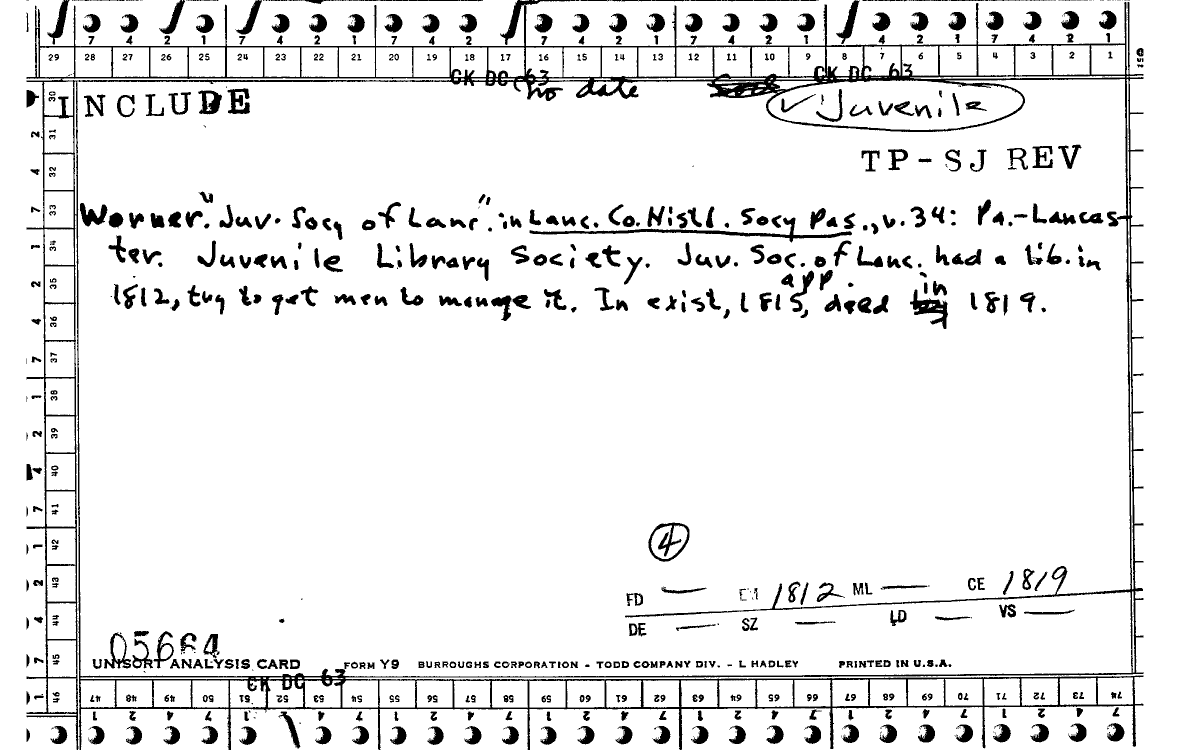 7 4 2 1 7 4 2 1 7 4 2 1 7 4 2 1 7 4 2 1 7 4 2 1 7 4 2 1
29 28 27 26 25 24 23 22 21 20 19 18 17 16 15 14 13 12 11 10 9 8 7 6 5 4 3 2 1
CK DC 63 no date CK DC 63
INCLUDE ✓ Juvenile
TP-SJ REV
Worner. "Juv. Socy of Lanc". in Lanc. Co. Histl. Socy Pas., v.34: Pa.-Lancas-
ter. Juvenile Library Society. Juv. Soc. of Lanc. had a lib. in
1812, try to get men to manage it. In exist, 1815, app. died in 1819.
4
FD — EM 1812 ML — CE 1819
DE — SZ — LD — VS —
05664
UNISORT ANALYSIS CARD FORM Y9 BURROUGHS CORPORATION - TODD COMPANY DIV. - L HADLEY PRINTED IN U.S.A.
CK DC 63
47 48 49 50 51 52 53 54 55 56 57 58 59 60 61 62 63 64 65 66 67 68 69 70 71 72 73 74
1 2 4 7 1 2 4 7 1 2 4 7 1 2 4 7 1 2 4 7 1 2 4 7 1 2 4 7